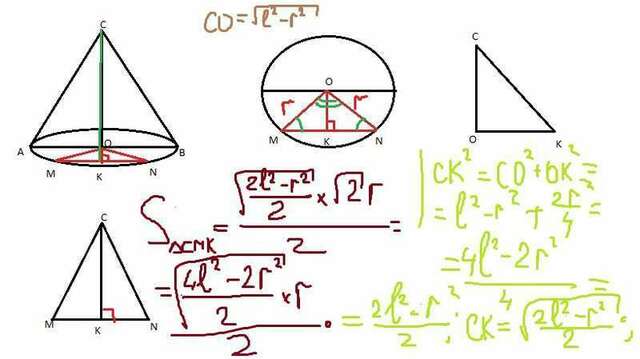 CO = √l² - r²
C
A
O
B
M
K
N
O
r
r
M
K
N
C
O
K
C
M
K
N
S△CMK = √(2l² - r²)/2 × √2 r / 2 =
= √(4l² - 2r²)/2 × r / 2 .
CK² = CO² + OK² =
= l² - r² + 2r²/4 =
= 4l² - 2r²/4 =
= 2l² - r²/2 ; CK = √(2l² - r²)/2